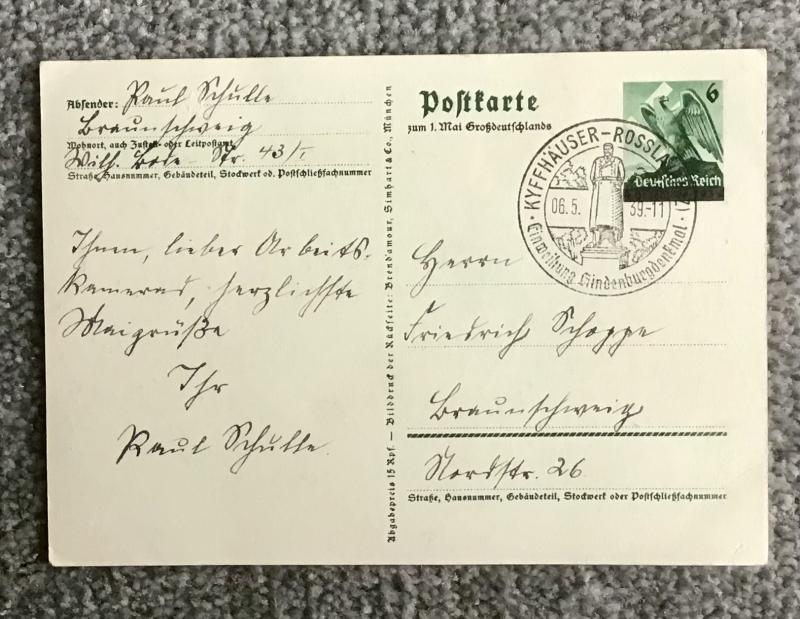 Absender: Paul Schulle
Braunschweig
Wohnort, auch Zustell- oder Leitpostamt
Wilh. Bode-Str. 43/I
Straße, Hausnummer, Gebäudeteil, Stockwerk od. Postschließfachnummer
Ihnen, lieber Arbeits-
kamerad, herzlichste
Maigrüße
Ihr
Paul Schulle.
Abgabepreis 15 Rpf. — Bilddruck der Rückseite: Brend'amour, Simhart & Co., München
Postkarte
zum 1. Mai Großdeutschlands
6
Deutsches Reich
KYFFHÄUSER-ROSSLA
06.5. 39.-11
Einweihung Hindenburgdenkmal
Herrn
Friedrich Schoppe
Braunschweig
Nordstr. 26
Straße, Hausnummer, Gebäudeteil, Stockwerk oder Postschließfachnummer